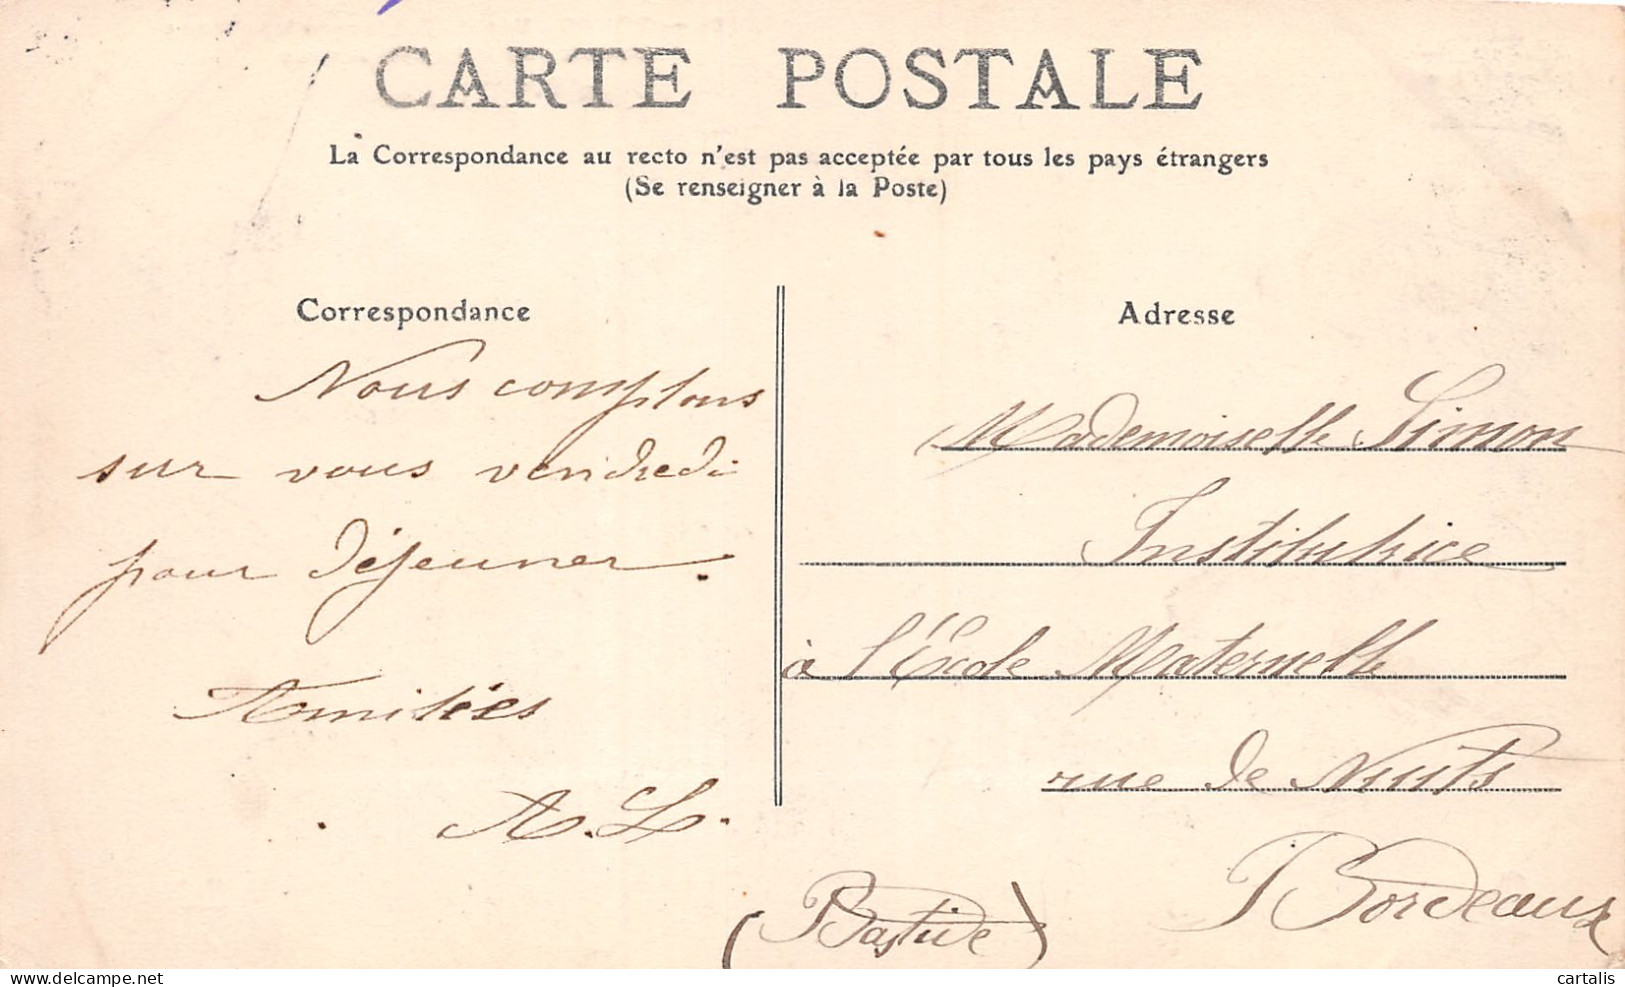 CARTE POSTALE
La Correspondance au recto n'est pas acceptée par tous les pays étrangers
(Se renseigner à la Poste)
Correspondance
Nous comptons
sur vous vendredi
pour déjeuner.
Amitiés
A. L.
Adresse
Mademoiselle Simon
Institutrice
à l'École Maternelle
rue de Nuits
Bordeaux
(Bastide)
delcampe.net
cartalis